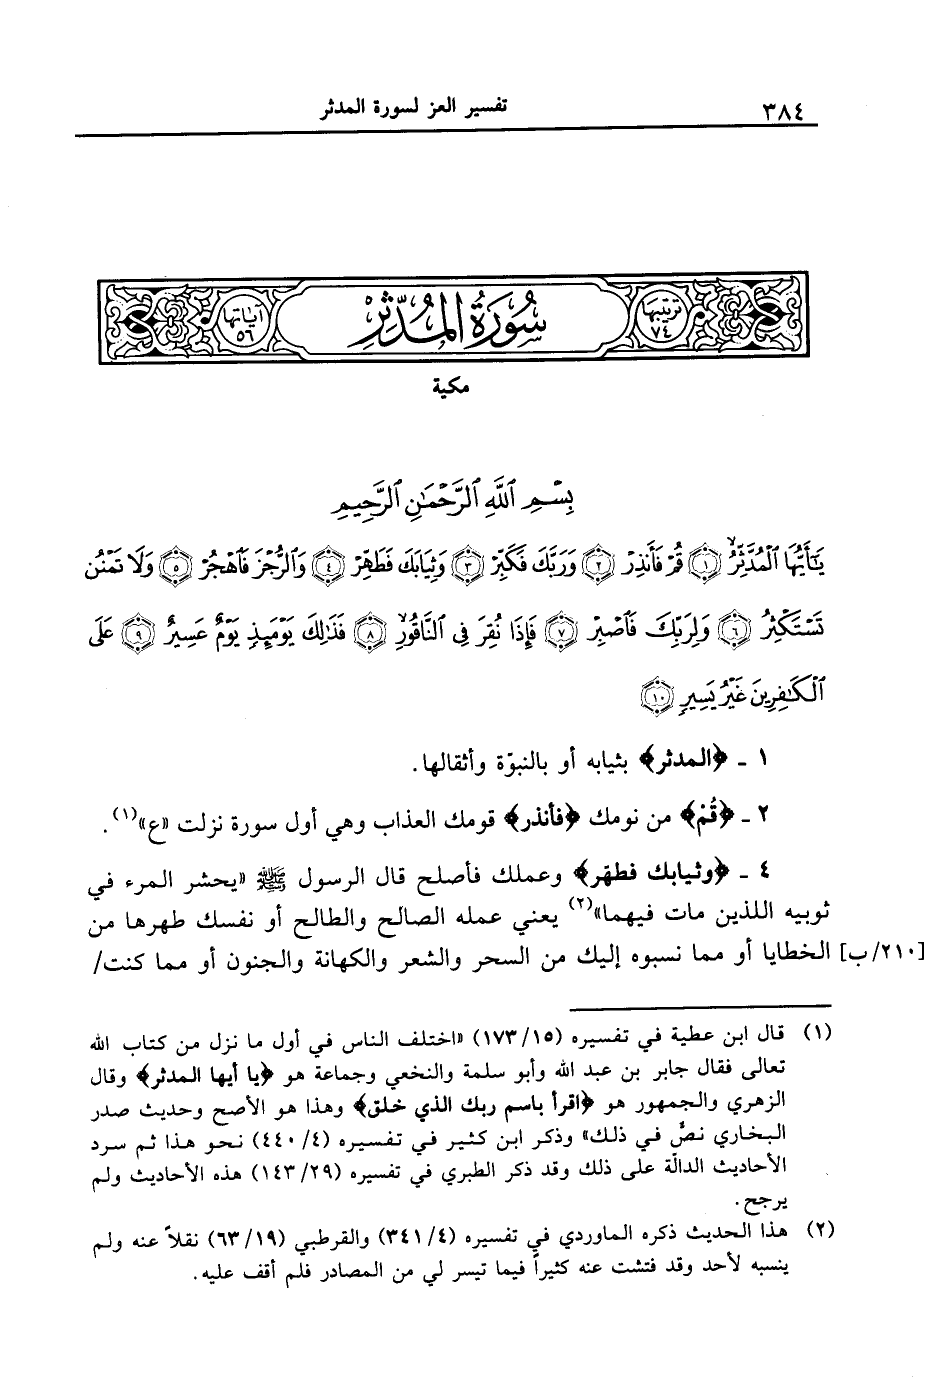 ٣٨٤ تفسير العز لسورة المدثر
ترتيبها ٧٤ سُورَةُ المُدَّثِّرِ آياتها ٥٦
مكية
بِسْمِ ٱللَّهِ ٱلرَّحْمَٰنِ ٱلرَّحِيمِ
يَٰٓأَيُّهَا ٱلْمُدَّثِّرُ ۝١ قُمْ فَأَنذِرْ ۝٢ وَرَبَّكَ فَكَبِّرْ ۝٣ وَثِيَابَكَ فَطَهِّرْ ۝٤ وَٱلرُّجْزَ فَٱهْجُرْ ۝٥ وَلَا تَمْنُن
تَسْتَكْثِرُ ۝٦ وَلِرَبِّكَ فَٱصْبِرْ ۝٧ فَإِذَا نُقِرَ فِى ٱلنَّاقُورِ ۝٨ فَذَٰلِكَ يَوْمَئِذٍ يَوْمٌ عَسِيرٌ ۝٩ عَلَى
ٱلْكَٰفِرِينَ غَيْرُ يَسِيرٍ ۝١٠
١ ـ ﴿المدثر﴾ بثيابه أو بالنبوّة وأثقالها.
٢ ـ ﴿قُمْ﴾ من نومك ﴿فأنذر﴾ قومك العذاب وهي أول سورة نزلت «ع»(١).
٤ ـ ﴿وثيابك فطهّر﴾ وعملك فأصلح قال الرسول ﷺ «يحشر المرء في
ثوبيه اللذين مات فيهما»(٢) يعني عمله الصالح والطالح أو نفسك طهرها من
[٢١٠/ب] الخطايا أو مما نسبوه إليك من السحر والشعر والكهانة والجنون أو مما كنت/
(١) قال ابن عطية في تفسيره (١٧٣/١٥) «اختلف الناس في أول ما نزل من كتاب الله
تعالى فقال جابر بن عبد الله وأبو سلمة والنخعي وجماعة هو ﴿يا أيها المدثر﴾ وقال
الزهري والجمهور هو ﴿اقرأ باسم ربك الذي خلق﴾ وهذا هو الأصح وحديث صدر
البخاري نصٌّ في ذلك» وذكر ابن كثير في تفسيره (٤٤٠/٤) نحو هذا ثم سرد
الأحاديث الدالّة على ذلك وقد ذكر الطبري في تفسيره (١٤٣/٢٩) هذه الأحاديث ولم
يرجح.
(٢) هذا الحديث ذكره الماوردي في تفسيره (٣٤١/٤) والقرطبي (٦٣/١٩) نقلاً عنه ولم
ينسبه لأحد وقد فتشت عنه كثيراً فيما تيسر لي من المصادر فلم أقف عليه.